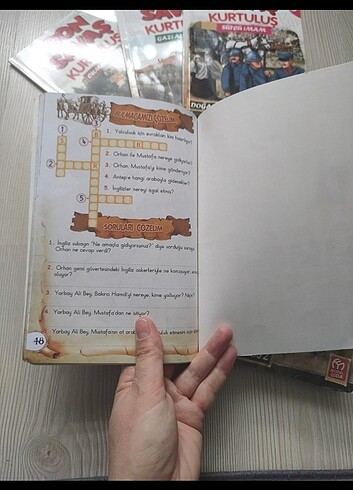 SON
SAVAŞ
KURTULUŞ
SAVAŞ
KURTULUŞ
GAZİ
KURTULUŞ
SÜTÇÜ İMAM
BULMACAMIZI ÇÖZELİM
1. Yolculuk için evrakları kim hazırlıyor?
2. Orhan ile Mustafa nereye gidiyorlar?
3. Orhan, Mustafa'yı kime gönderiyor?
4. Antep'e hangi arabayla gidecekler?
5. İngilizler nereyi işgal etmiş?
1
2
3
4
5
SORULARI ÇÖZELİM
1. İngiliz subayın "Ne amaçla gidiyorsunuz?" diye sorduğu soruya
Orhan ne cevap verdi?
2. Orhan gemi güvertesindeki İngiliz askerleriyle ne konuşuyor
3. Yarbay Ali Bey, Bakırcı Hamdi'yi nereye, kime yolluyor? Niçin?
4. Yarbay Ali Bey, Mustafa'dan ne istiyor?
Yarbay Ali Bey, Mustafa'nın at
48